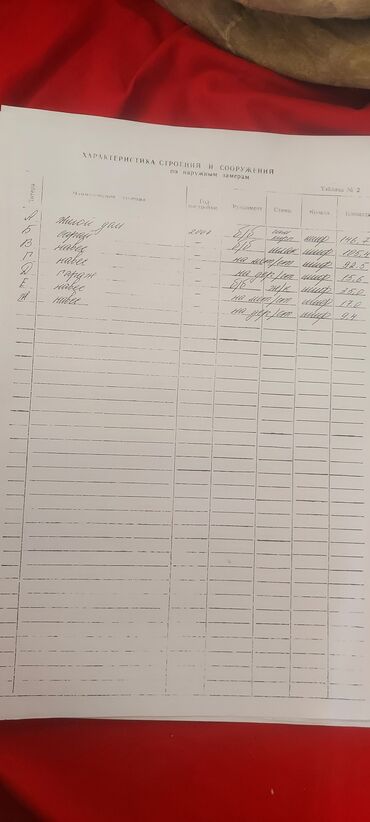 ХАРАКТЕРИСТИКА СТРОЕНИЙ И СООРУЖЕНИЙ
по наружным замерам
Таблица № 2
Литера Наименование Год постройки Фундамент Стены Кровля Площадь
А жилой дом 2000 б/б шиф 146.7
Б сарай – б/б шиф 105.4
В навес – на мет/ст шиф 92.5
Г навес – на дер/ст шиф 15.6
Д гараж – б/б ж/к шиф 25.0
Е навес – на мет/ст шиф 17.0
Ж навес – на дер/ст шиф 9.4